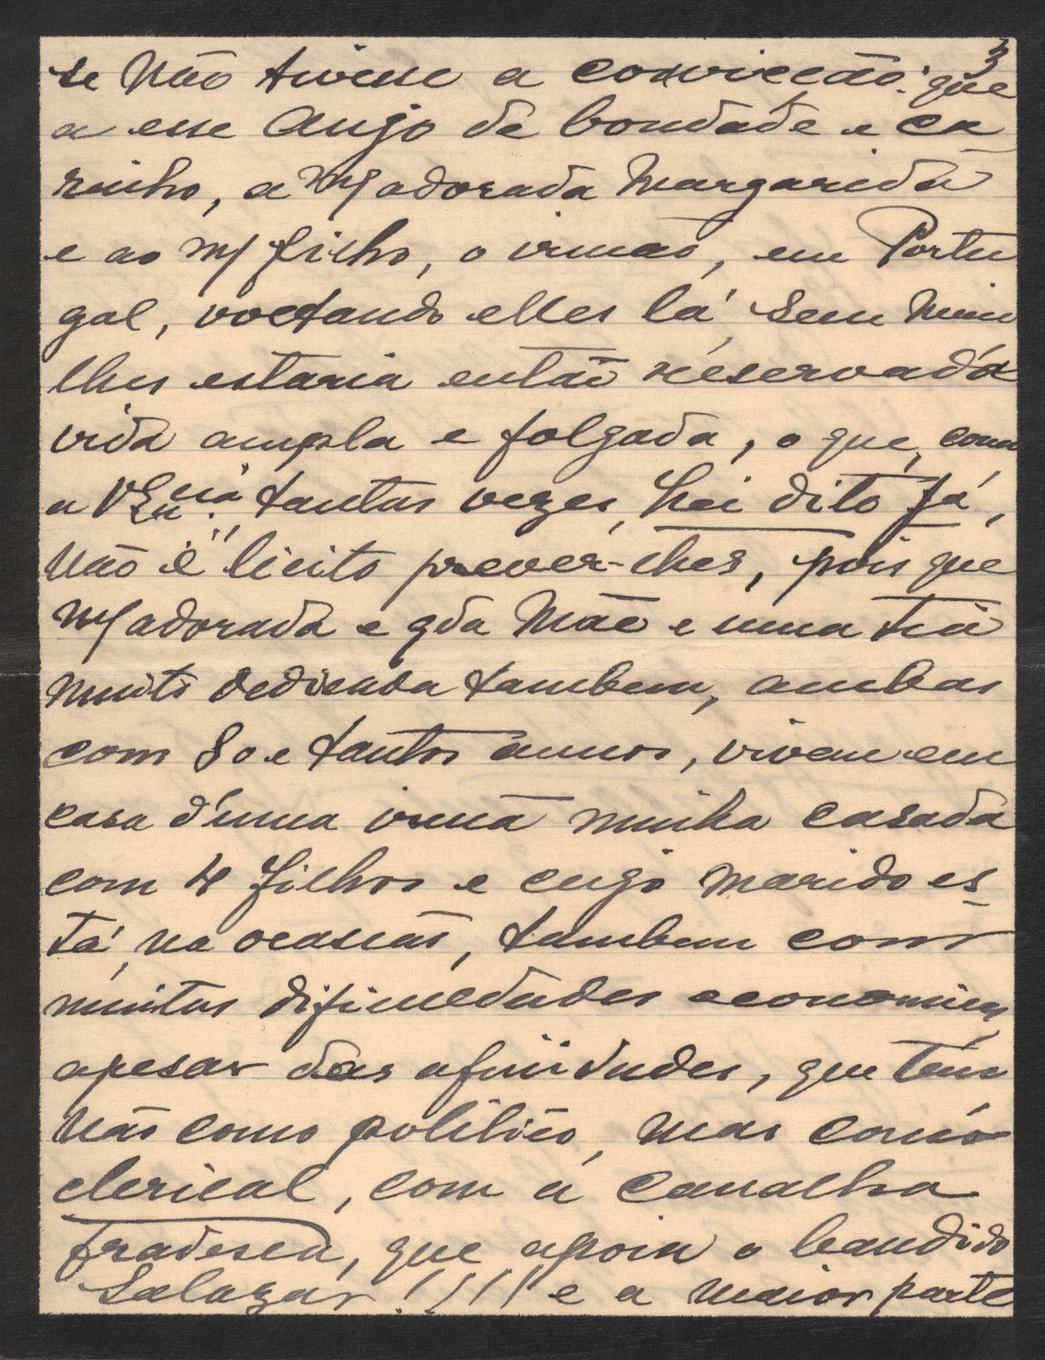 3
se não tivesse a convicção: que
a esse Anjo de bondade e ca
rinho, a m/ adorada Margarida
e ao m/ filho, o irmão, em Portu
gal, voltando elles lá sem mim
lhes estaria então reservada
vida ampla e folgada, o que, como
a V. Ex.cia tantas vezes, hei dito já,
não é licito prever-lhes, pois que
m/ adorada e qda Mãe e uma tia
muito dedicada tambem, ambas
com 80 e tantos annos, vivem em
casa d'uma irmã minha casada
com 4 filhos e cujo marido es
tá, na ocasião, tambem com
muitas dificuldades economicas,
apesar das afinidades, que tem
não como politico, mas como
clerical, com a canalha
fradesca, que apoia o bandido
Salazar!!!! e a maior parte